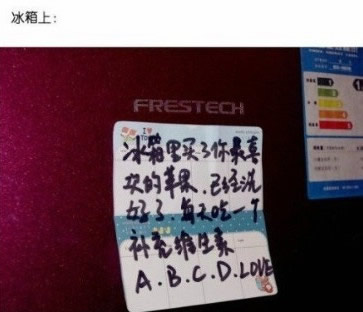 冰箱上：
FRESTECH
冰箱里买了你最喜
欢的苹果，已经洗
好了，每天吃一个
补充维生素
A.B.C.D.LOVE